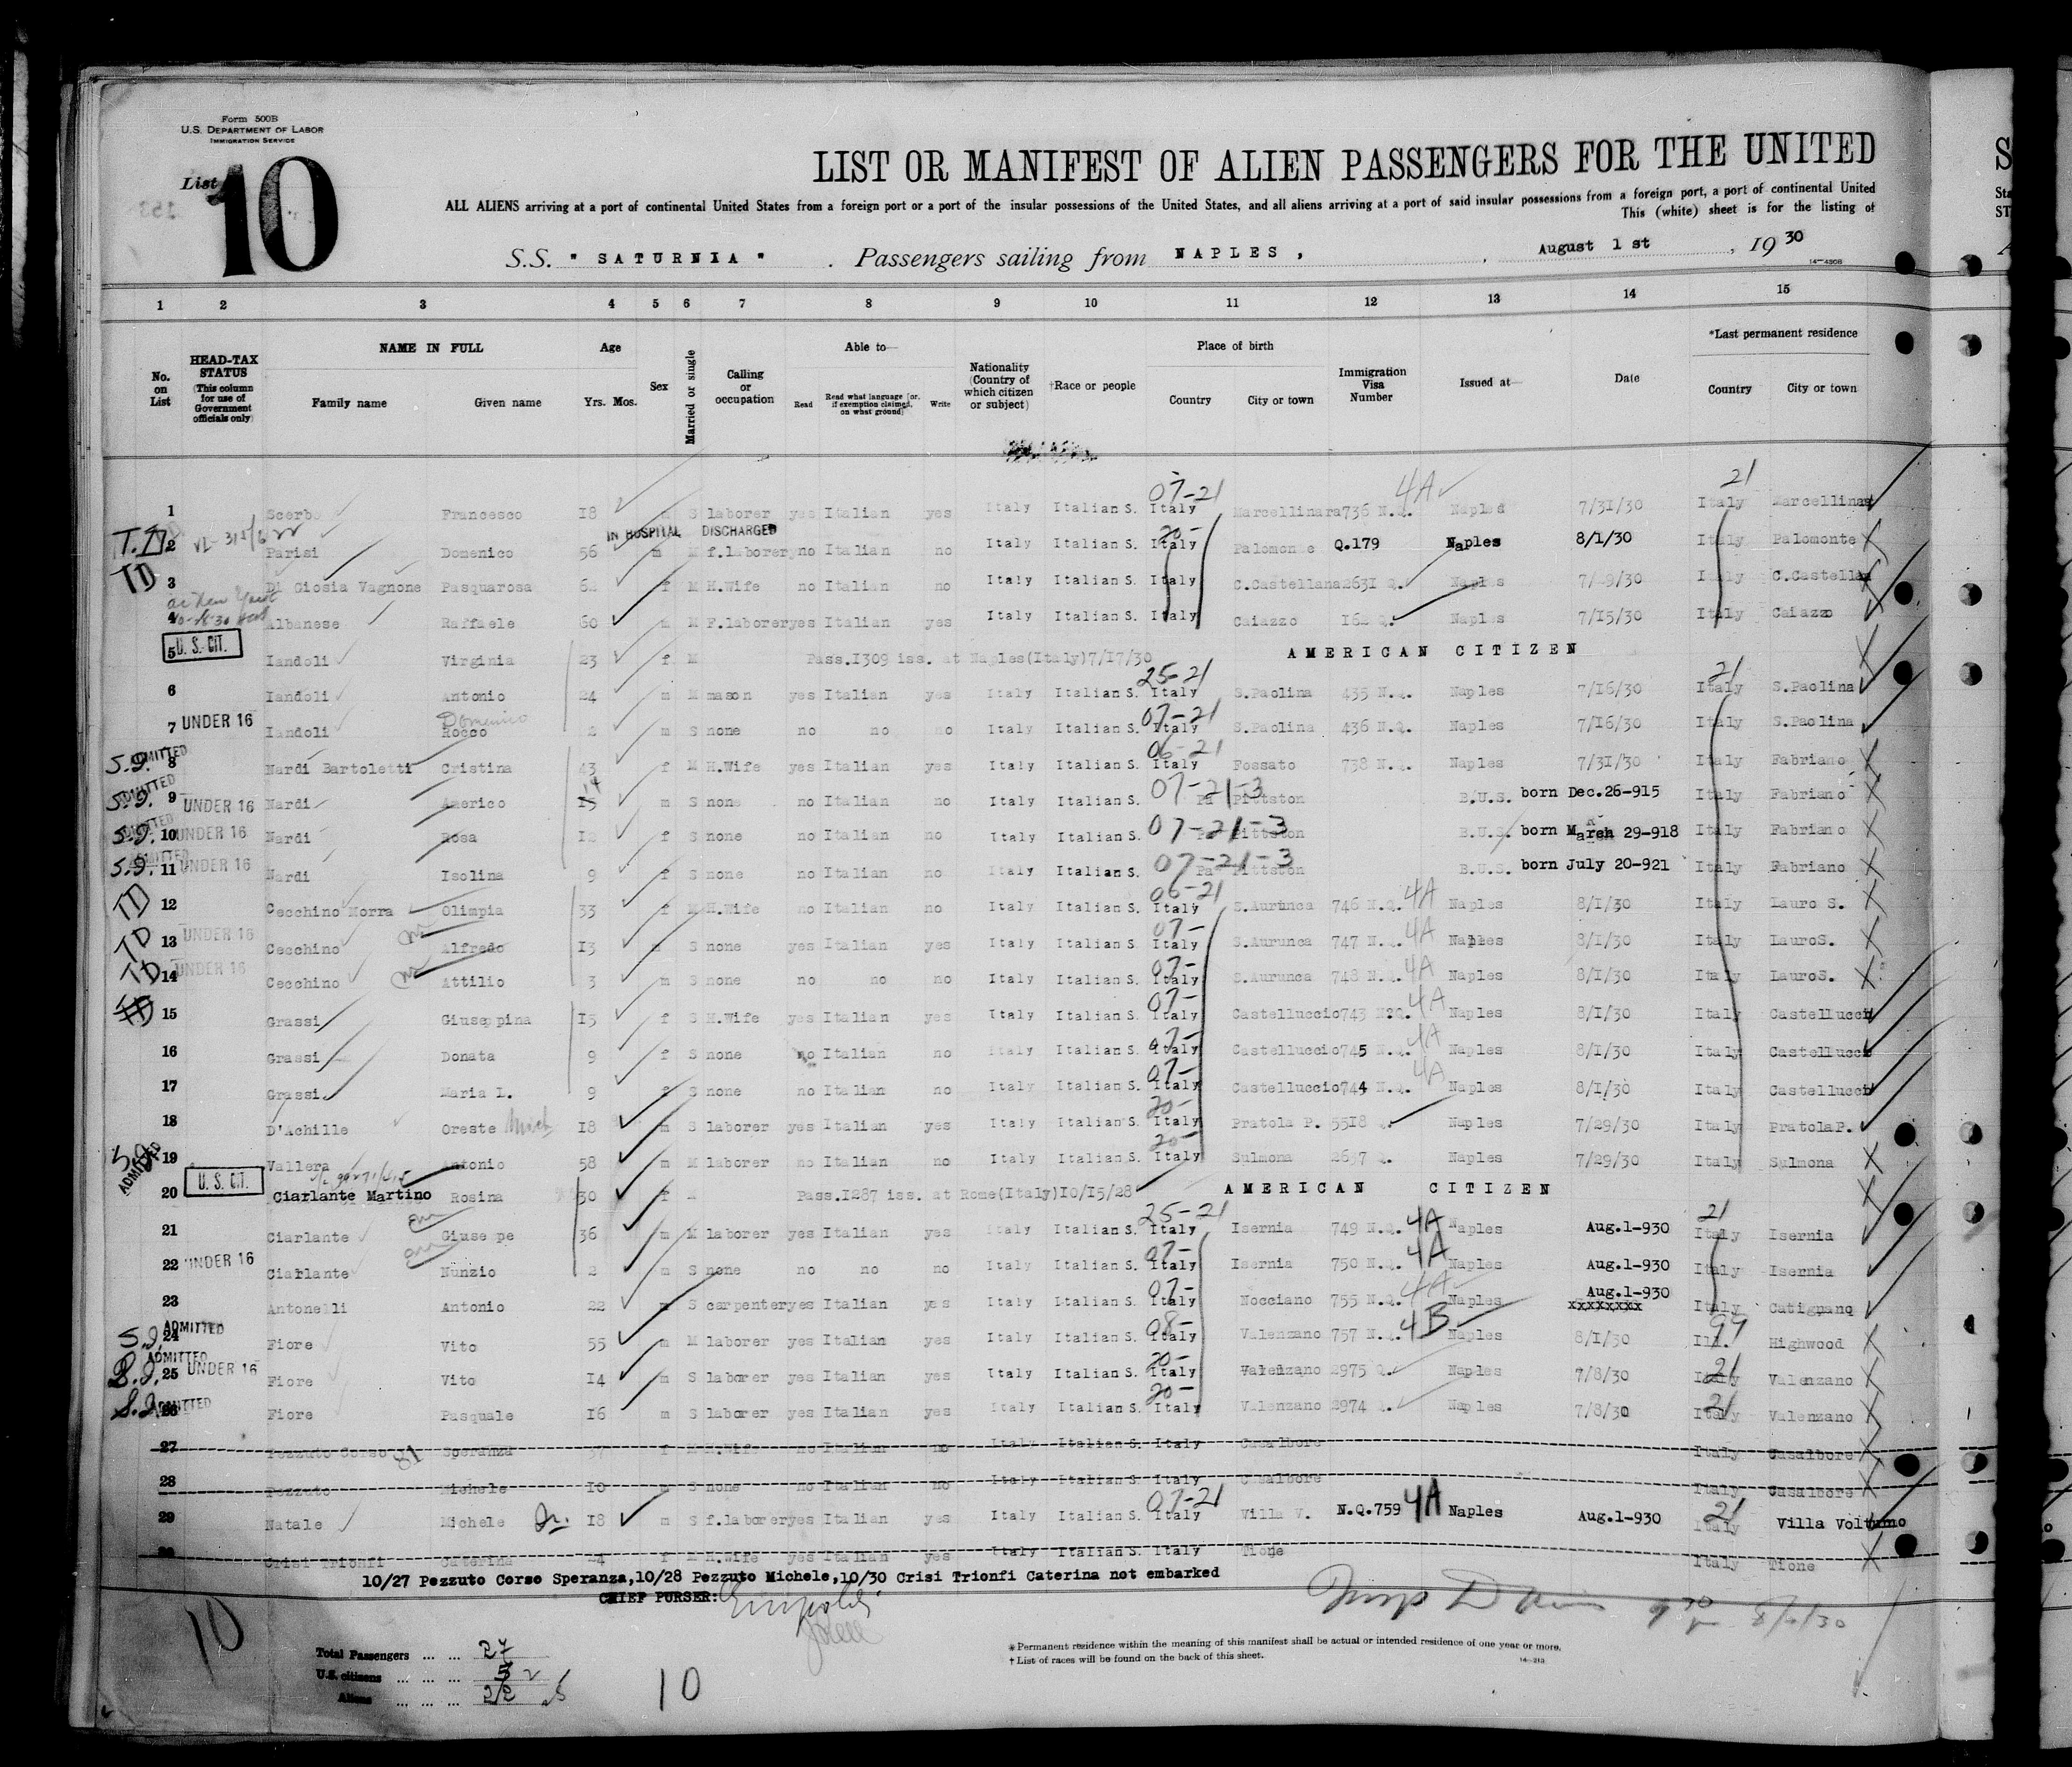 Form 500B
U.S. DEPARTMENT OF LABOR
IMMIGRATION SERVICE
List 10
LIST OR MANIFEST OF ALIEN PASSENGERS FOR THE UNITED
ALL ALIENS arriving at a port of continental United States from a foreign port or a port of the insular possessions of the United States, and all aliens arriving at a port of said insular possessions from a foreign port, a port of continental United
This (white) sheet is for the listing of
S.S. "SATURNIA" . Passengers sailing from NAPLES, , August 1 st , 19 30
1 2 3 4 5 6 7 8 9 10 11 12 13 14 15
No. on List
HEAD-TAX STATUS (This column for use of Government officials only)
NAME IN FULL Family name Given name
Age Yrs. Mos.
Sex
Married or single
Calling or occupation
Able to— Read Read what language [or, if exemption claimed, on what ground] Write
Nationality (Country of which citizen or subject)
†Race or people
Place of birth Country City or town
Immigration Visa Number
Issued at—
Date
*Last permanent residence Country City or town
1 Scerbo Francesco 18 S laborer yes Italian yes Italy Italian S. 07-21 Italy Marcellinara 736 N.Q. 4A Naples 7/31/30 21 Italy Marcellinara
IN HOSPITAL DISCHARGED
TD 2 Parisi Domenico 56 m M f.laborer no Italian no Italy Italian S. 20- Italy Palomonte Q.179 Naples 8/1/30 Italy Palomonte X
TD 3 Di Giosia Vagnone Pasquarosa 62 f M H.Wife no Italian no Italy Italian S. Italy C.Castellana 2631 Q. Naples 7/29/30 Italy C.Castellana
4 Albanese Raffaele 60 m M F.laborer yes Italian yes Italy Italian S. Italy Caiazzo Naples 7/15/30 Italy Caiazzo
5 U. S. CIT. Iandoli Virginia 23 f M Pass.1309 iss. at Naples(Italy)7/17/30 AMERICAN CITIZEN X
6 Iandoli Antonio 24 m M mason yes Italian yes Italy Italian S. 25-21 Italy S.Paolina 435 N.Q. Naples 7/16/30 21 Italy S.Paolina
7 UNDER 16 Iandoli Domenico Rocco 2 m S none no no no Italy Italian S. 07-21 Italy S.Paolina 436 N.Q. Naples 7/16/30 Italy S.Paolina
S.I. ADMITTED 8 Nardi Bartoletti Cristina 43 f M H.Wife yes Italian yes Italy Italian S. 06-21 Italy Fossato 738 N.Q. Naples 7/31/30 Italy Fabriano X
S.I. ADMITTED 9 UNDER 16 Nardi Americo 14 m S none no Italian no Italy Italian S. 07-21-3 Pa Pittston B.U.S. born Dec.26-915 Italy Fabriano X
S.I. ADMITTED 10 UNDER 16 Nardi Rosa 12 f S none no Italian no Italy Italian S. 07-21-3 Pa Pittston B.U.S. born March 29-918 Italy Fabriano X
S.I. ADMITTED 11 UNDER 16 Nardi Isolina 9 f S none no Italian no Italy Italian S. 07-21-3 Pa Pittston B.U.S. born July 20-921 Italy Fabriano X
TD 12 Cecchino Morra Olimpia 33 f M H.Wife no Italian no Italy Italian S. 06-21 Italy S.Aurunca 746 N.Q. 4A Naples 8/1/30 Italy Lauro S. X
TD 13 UNDER 16 Cecchino Alfredo 13 m S none yes Italian yes Italy Italian S. 07- Italy S.Aurunca 747 N.Q. 4A Naples 8/1/30 Italy LauroS. X
TD 14 UNDER 16 Cecchino Attilio 3 m S none no no no Italy Italian S. 07- Italy S.Aurunca 748 N.Q. 4A Naples 8/1/30 Italy LauroS. X
15 Grassi Giuseppina 15 f S H.Wife yes Italian yes Italy Italian S. 07- Italy Castelluccio 743 N.Q. 4A Naples 8/1/30 Italy Castellucci
16 Grassi Donata 9 f S none no Italian no Italy Italian S. 07- Italy Castelluccio 745 N.Q. 4A Naples 8/1/30 Italy Castellucci
17 Grassi Maria L. 9 f S none no Italian no Italy Italian S. 07- Italy Castelluccio 744 N.Q. 4A Naples 8/1/30 Italy Castellucci
18 D'Achille Oreste 18 m S laborer yes Italian yes Italy Italian S. 20- Italy Pratola P. 5518 Q. Naples 7/29/30 Italy PratolaP.
S.I. ADMITTED 19 Vallera Antonio 58 m M laborer no Italian no Italy Italian S. 20- Italy Sulmona Naples 7/29/30 Italy Sulmona X
20 U. S. CIT. Ciarlante Martino Rosina 30 f M Pass.1287 iss. at Rome(Italy)10/15/28 AMERICAN CITIZEN X
21 Ciarlante Giuseppe 36 m M laborer yes Italian yes Italy Italian S. 25-21 Italy Isernia 749 N.Q. 4A Naples Aug.1-930 21 Italy Isernia
22 UNDER 16 Ciarlante Nunzio 2 m S none no no no Italy Italian S. 07- Italy Isernia 750 N.Q. 4A Naples Aug.1-930 Italy Isernia
23 Antonelli Antonio 22 m S carpenter yes Italian yes Italy Italian S. 07- Italy Nocciano 755 N.Q. 4A Naples Aug.1-930 xxxxxxxx Italy Catignano
S.I. ADMITTED 24 Fiore Vito 55 m M laborer yes Italian yes Italy Italian S. 08- Italy Valenzano 757 N.Q. 4B Naples 8/1/30 Ill. Highwood X
S.I. ADMITTED 25 UNDER 16 Fiore Vito 14 m S laborer yes Italian yes Italy Italian S. 20- Italy Valenzano 2975 Q. Naples 7/8/30 21 Italy Valenzano X
S.I. ADMITTED 26 Fiore Pasquale 16 m S laborer yes Italian yes Italy Italian S. 20- Italy Valenzano 2974 Q. Naples 7/8/30 21 Italy Valenzano X
27 Pezzuto Corso Speranza f M H.Wife no Italian no Italy Italian S. Italy Casalbore Italy Casalbore X
28 Pezzuto Michele 10 m S none no Italian no Italy Italian S. Italy Casalbore Italy Casalbore X
29 Natale Michele 18 m S f.laborer yes Italian yes Italy Italian S. 07-21 Italy Villa V. N.Q.759 4A Naples Aug.1-930 21 Italy Villa Volturno
30 Crisi Trionfi Caterina 24 f M H.Wife yes Italian yes Italy Italian S. Italy Tione Italy Tione X
10/27 Pezzuto Corso Speranza,10/28 Pezzuto Michele,10/30 Crisi Trionfi Caterina not embarked
CHIEF PURSER:
10
Total Passengers ... ... 27
U.S. citizens ... ... ... 2
Aliens ... ... ...
10
*Permanent residence within the meaning of this manifest shall be actual or intended residence of one year or more.
†List of races will be found on the back of this sheet.